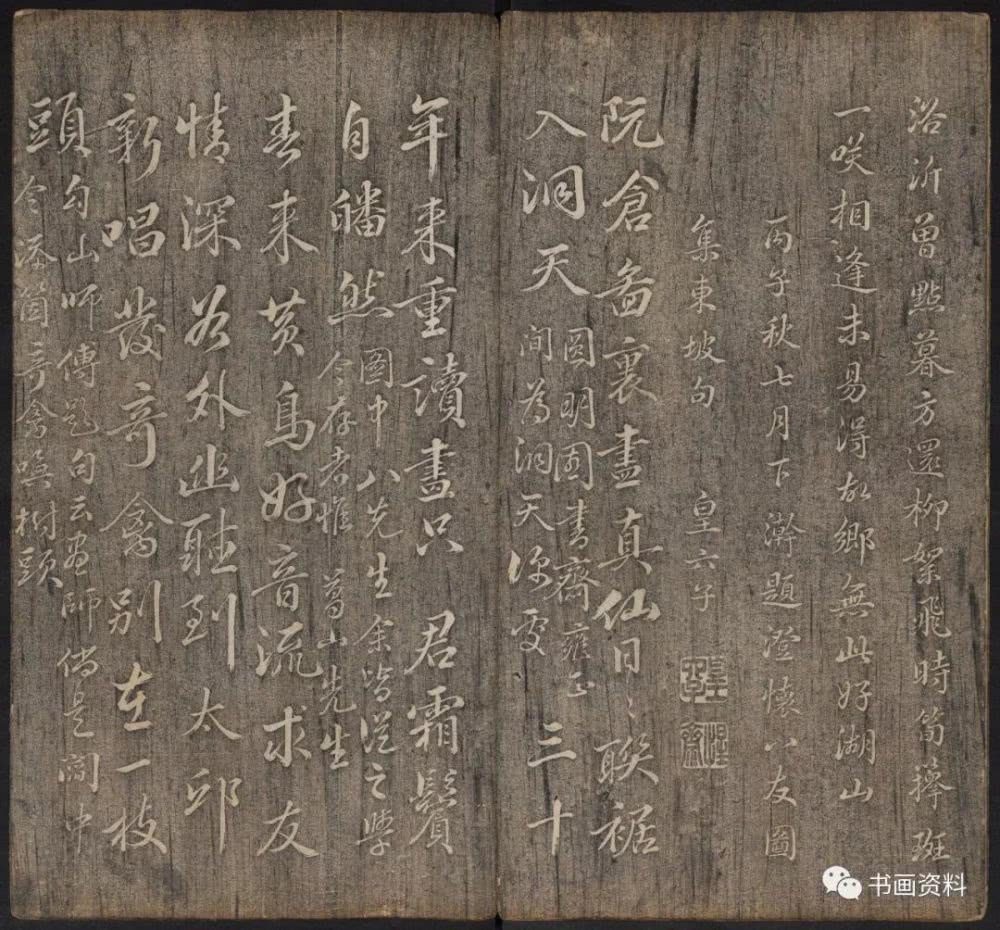 浴沂曾點暮方還柳絮飛時筍籜斑
一咲相逢未易得故鄉無此好湖山
丙午秋七月下澣題澄懷八友圖
集東坡句 皇六子
阮倉畫裏盡真仙日〻聯裾
入洞天 圓明園書齋雍正
間為洞天深處 三十
年來重讀畫只 君霜鬢
自皤然 圖中八先生余皆從之學
今存者惟 葛山先生
春來黃鳥好音流求友
情深, 外迆聽到 太邱
新唱發奇禽別在一枝
頭 勾山師傅題句云畫師倘是閬中
令添箇奇禽喚樹頭
书画资料